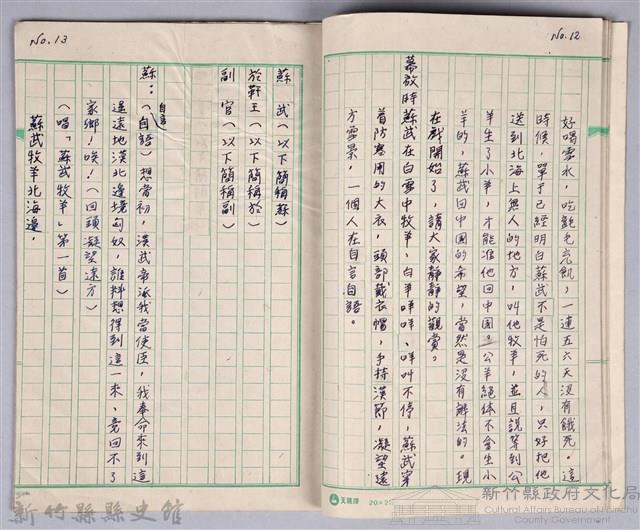 No.12
好喝雪水，吃氈毛充飢，一連五六天沒有餓死。這
時候，單于已經明白蘇武不是怕死的人，只好把他
送到北海上無人的地方，叫他牧羊，並且說等到公
羊生了小羊，才能准他回中國。公羊絕体不會生小
羊的，蘇武回中國的希望，當然是沒有辦法的。現
在戲開始了，請大家靜靜的觀賞。
幕啟時蘇武在白雪中牧羊，白羊咩咩、咩叫不停，蘇武穿
首防寒用的大衣，頭部戴衣帽，手持漢節，凝望遠
方雪景，一個人在自言自語。
天鵝牌
No.13
蘇　武（以下簡稱蘇）
於靬王（以下簡稱於）
副　官（以下簡稱副）
蘇：（自語）想當初，漢武帝派我當使臣，我奉命來到這
自言
遥遠地漠北邊境匈奴，誰料想得到這一來、竟回不了
家鄉！唉！（回頭凝望遠方）
（唱「蘇武牧羊」第一首）
蘇武牧羊北海邊，
新竹縣縣史館
新竹縣政府文化局
Cultural Affairs Bureau of Hsinchu
County Government